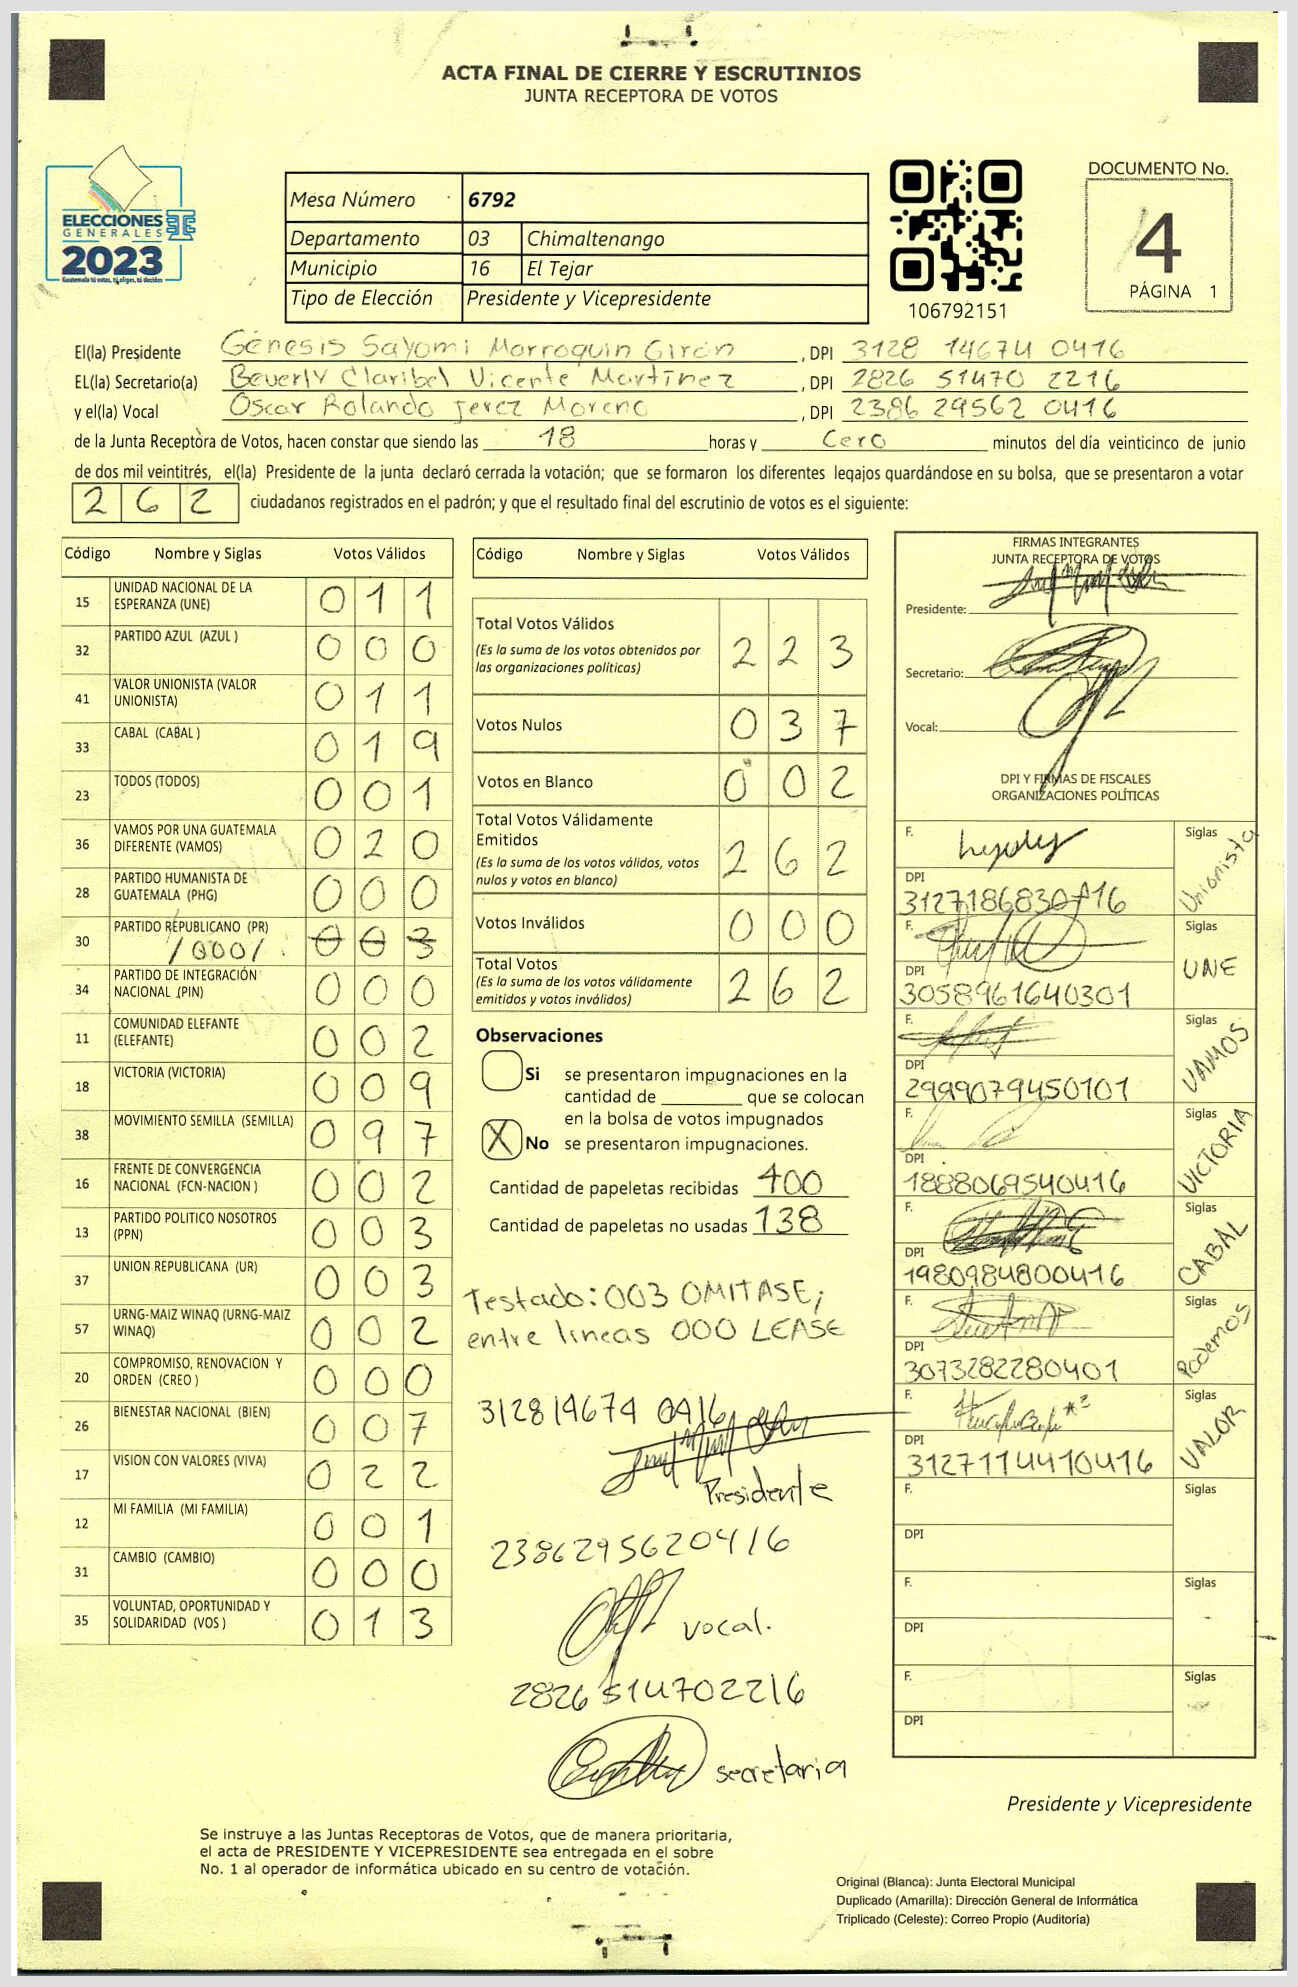 ACTA FINAL DE CIERRE Y ESCRUTINIOS
JUNTA RECEPTORA DE VOTOS
ELECCIONES
GENERALES
2023
Guatemala tú votas, tú eliges, tú decides
Mesa Número 6792
Departamento 03 Chimaltenango
Municipio 16 El Tejar
Tipo de Elección Presidente y Vicepresidente
106792151
DOCUMENTO No.
4
PÁGINA 1
El(la) Presidente Génesis Sayomi Marroquin Girón , DPI 3128 14674 0416
EL(la) Secretario(a) Beverly Claribel Vicente Martínez , DPI 2826 51470 2216
y el(la) Vocal Oscar Rolando Jerez Moreno , DPI 2386 29562 0416
de la Junta Receptora de Votos, hacen constar que siendo las 18 horas y Cero minutos del día veinticinco de junio
de dos mil veintitrés, el(la) Presidente de la junta declaró cerrada la votación; que se formaron los diferentes legajos quardándose en su bolsa, que se presentaron a votar
262 ciudadanos registrados en el padrón; y que el resultado final del escrutinio de votos es el siguiente:
Código Nombre y Siglas Votos Válidos
15 UNIDAD NACIONAL DE LA ESPERANZA (UNE) 011
32 PARTIDO AZUL (AZUL ) 000
41 VALOR UNIONISTA (VALOR UNIONISTA) 011
33 CABAL (CABAL ) 019
23 TODOS (TODOS) 001
36 VAMOS POR UNA GUATEMALA DIFERENTE (VAMOS) 020
28 PARTIDO HUMANISTA DE GUATEMALA (PHG) 000
30 PARTIDO REPUBLICANO (PR) /000/ 003
34 PARTIDO DE INTEGRACIÓN NACIONAL (PIN) 000
11 COMUNIDAD ELEFANTE (ELEFANTE) 002
18 VICTORIA (VICTORIA) 009
38 MOVIMIENTO SEMILLA (SEMILLA) 097
16 FRENTE DE CONVERGENCIA NACIONAL (FCN-NACION ) 002
13 PARTIDO POLITICO NOSOTROS (PPN) 003
37 UNION REPUBLICANA (UR) 003
57 URNG-MAIZ WINAQ (URNG-MAIZ WINAQ) 002
20 COMPROMISO, RENOVACION Y ORDEN (CREO ) 000
26 BIENESTAR NACIONAL (BIEN) 007
17 VISION CON VALORES (VIVA) 022
12 MI FAMILIA (MI FAMILIA) 001
31 CAMBIO (CAMBIO) 000
35 VOLUNTAD, OPORTUNIDAD Y SOLIDARIDAD (VOS ) 013
Código Nombre y Siglas Votos Válidos
Total Votos Válidos 223
(Es la suma de los votos obtenidos por
las organizaciones políticas)
Votos Nulos 037
Votos en Blanco 002
Total Votos Válidamente
Emitidos 262
(Es la suma de los votos válidos, votos
nulos y votos en blanco)
Votos Inválidos 000
Total Votos 262
(Es la suma de los votos válidamente
emitidos y votos inválidos)
Observaciones
Si se presentaron impugnaciones en la
cantidad de ________ que se colocan
en la bolsa de votos impugnados
X No se presentaron impugnaciones.
Cantidad de papeletas recibidas 400
Cantidad de papeletas no usadas 138
Testado: 003 OMITASE;
entre lineas 000 LEASE
312814674 0416
Presidente
2386295620416
vocal.
2826514702216
secretaria
FIRMAS INTEGRANTES
JUNTA RECEPTORA DE VOTOS
Presidente:
Secretario:
Vocal:
DPI Y FIRMAS DE FISCALES
ORGANIZACIONES POLÍTICAS
F. Siglas Unionista
DPI 3127186830416
F. Siglas UNE
DPI 3058961640301
F. Siglas VAMOS
DPI 2999079450101
F. Siglas VICTORIA
DPI 1888069540416
F. Siglas CABAL
DPI 1980984800416
F. Siglas Podemos
DPI 3073282280401
F. Siglas VALOR
DPI 3127114410416
F. Siglas
DPI
F. Siglas
DPI
F. Siglas
DPI
Presidente y Vicepresidente
Se instruye a las Juntas Receptoras de Votos, que de manera prioritaria,
el acta de PRESIDENTE Y VICEPRESIDENTE sea entregada en el sobre
No. 1 al operador de informática ubicado en su centro de votación.
Original (Blanca): Junta Electoral Municipal
Duplicado (Amarilla): Dirección General de Informática
Triplicado (Celeste): Correo Propio (Auditoría)